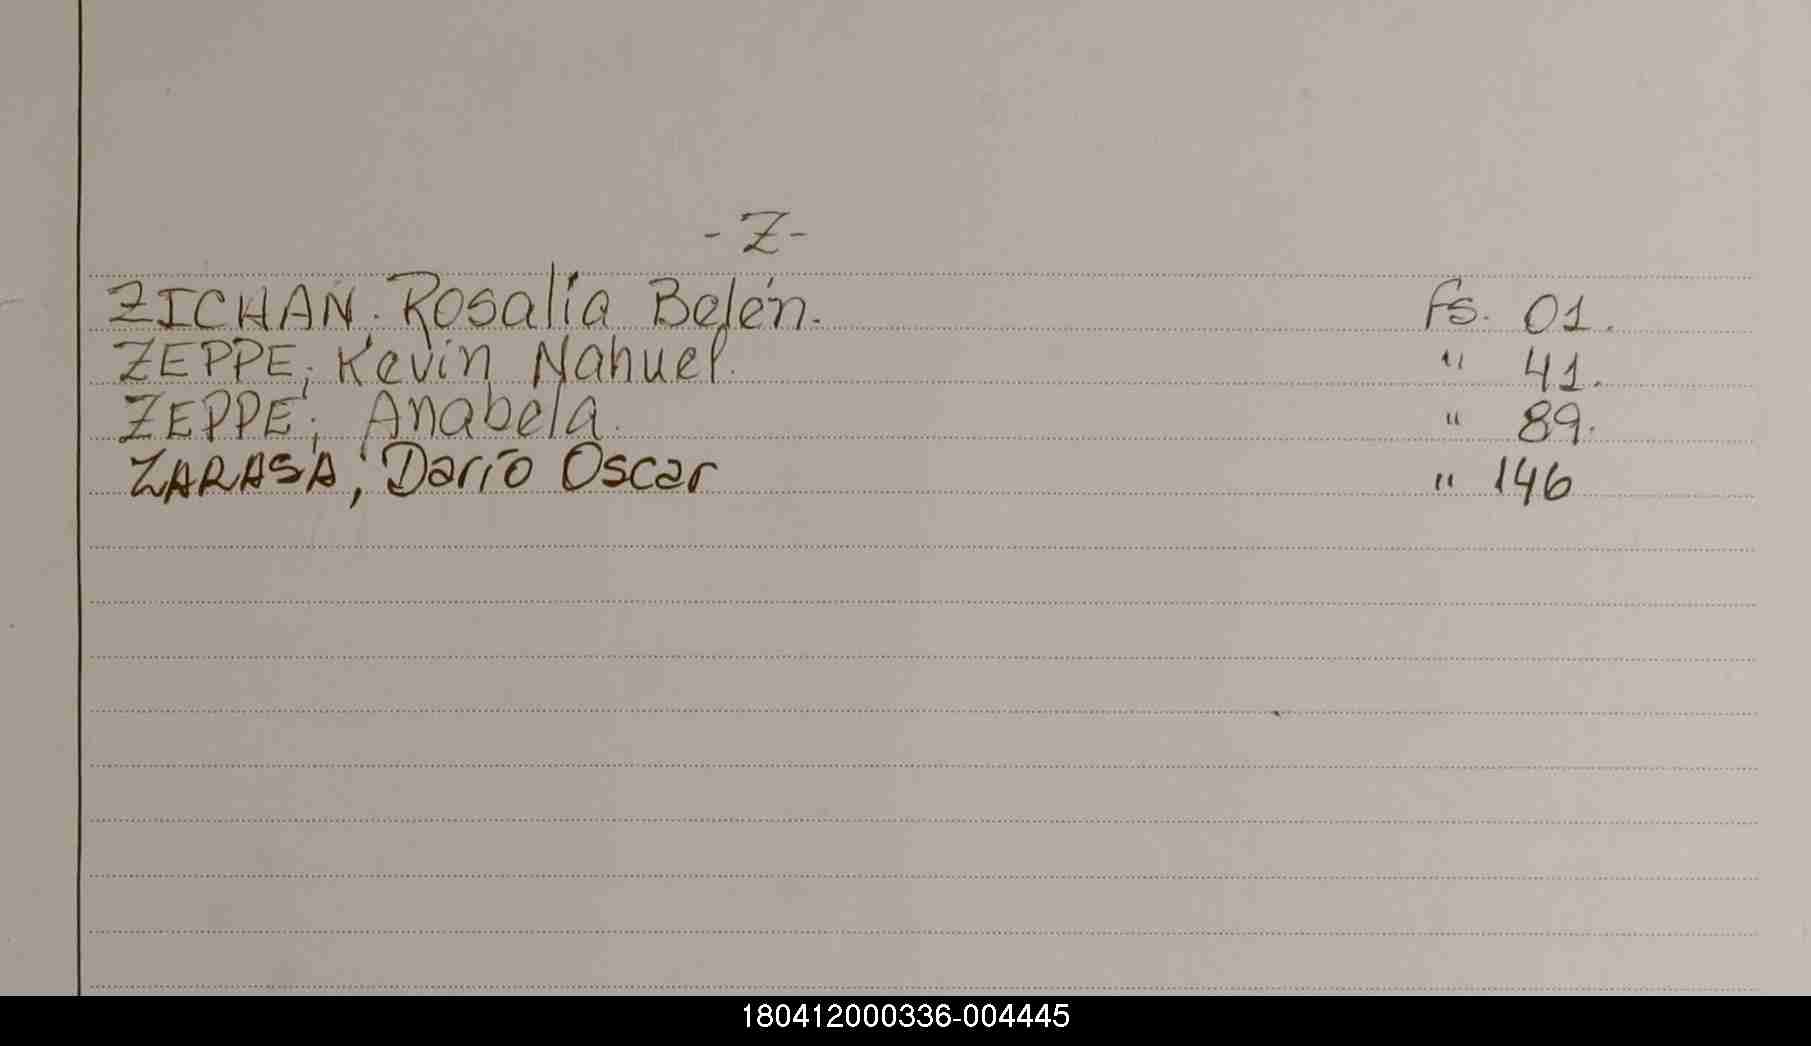 - Z -
ZICHAN, Rosalía Belén. Fs. 01.
ZEPPE, Kevin Nahuel. " 41.
ZEPPE, Anabela. " 89.
ZARASA, Darío Oscar " 146
180412000336-004445